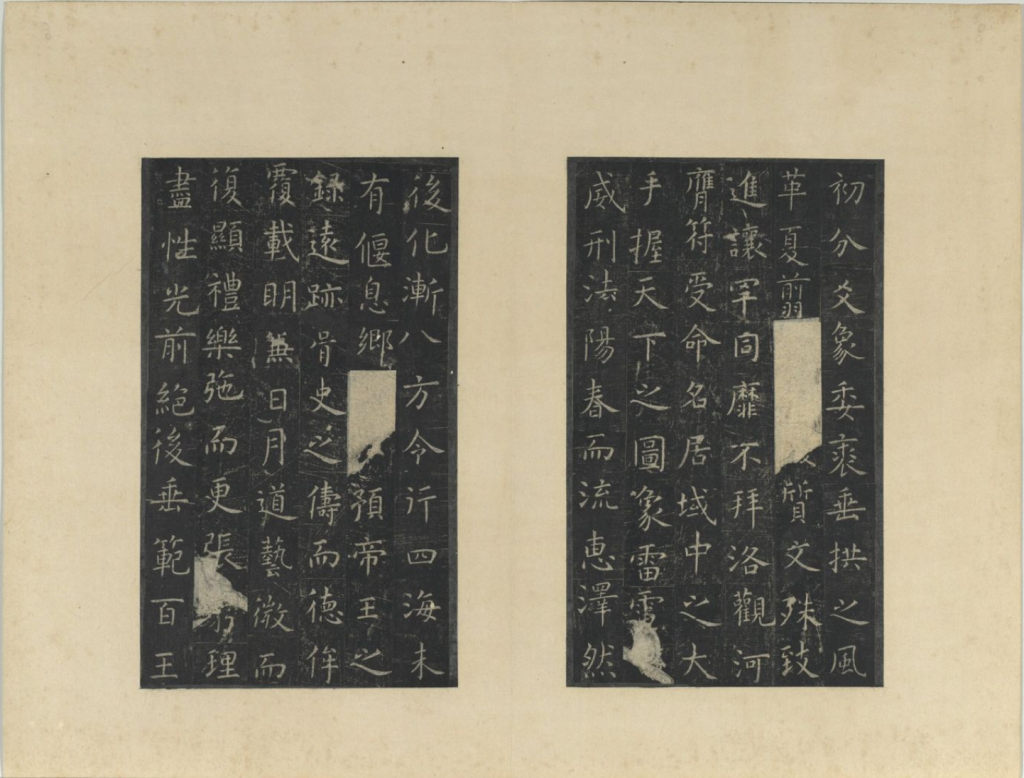 初分爻象委裘垂拱之風
革夏翦質文殊致
進讓罕同靡不拜洛觀河
膺符受命名居域中之大
手握天下之圖象雷電
威刑法陽春而流惠澤然
後化漸八方令行四海未
有偃息鄉預帝王之
錄遠跡胥史之儔而德侔
覆載明兼日月道藝微而
復顯禮樂弛而更張理
盡性光前絕後垂範百王